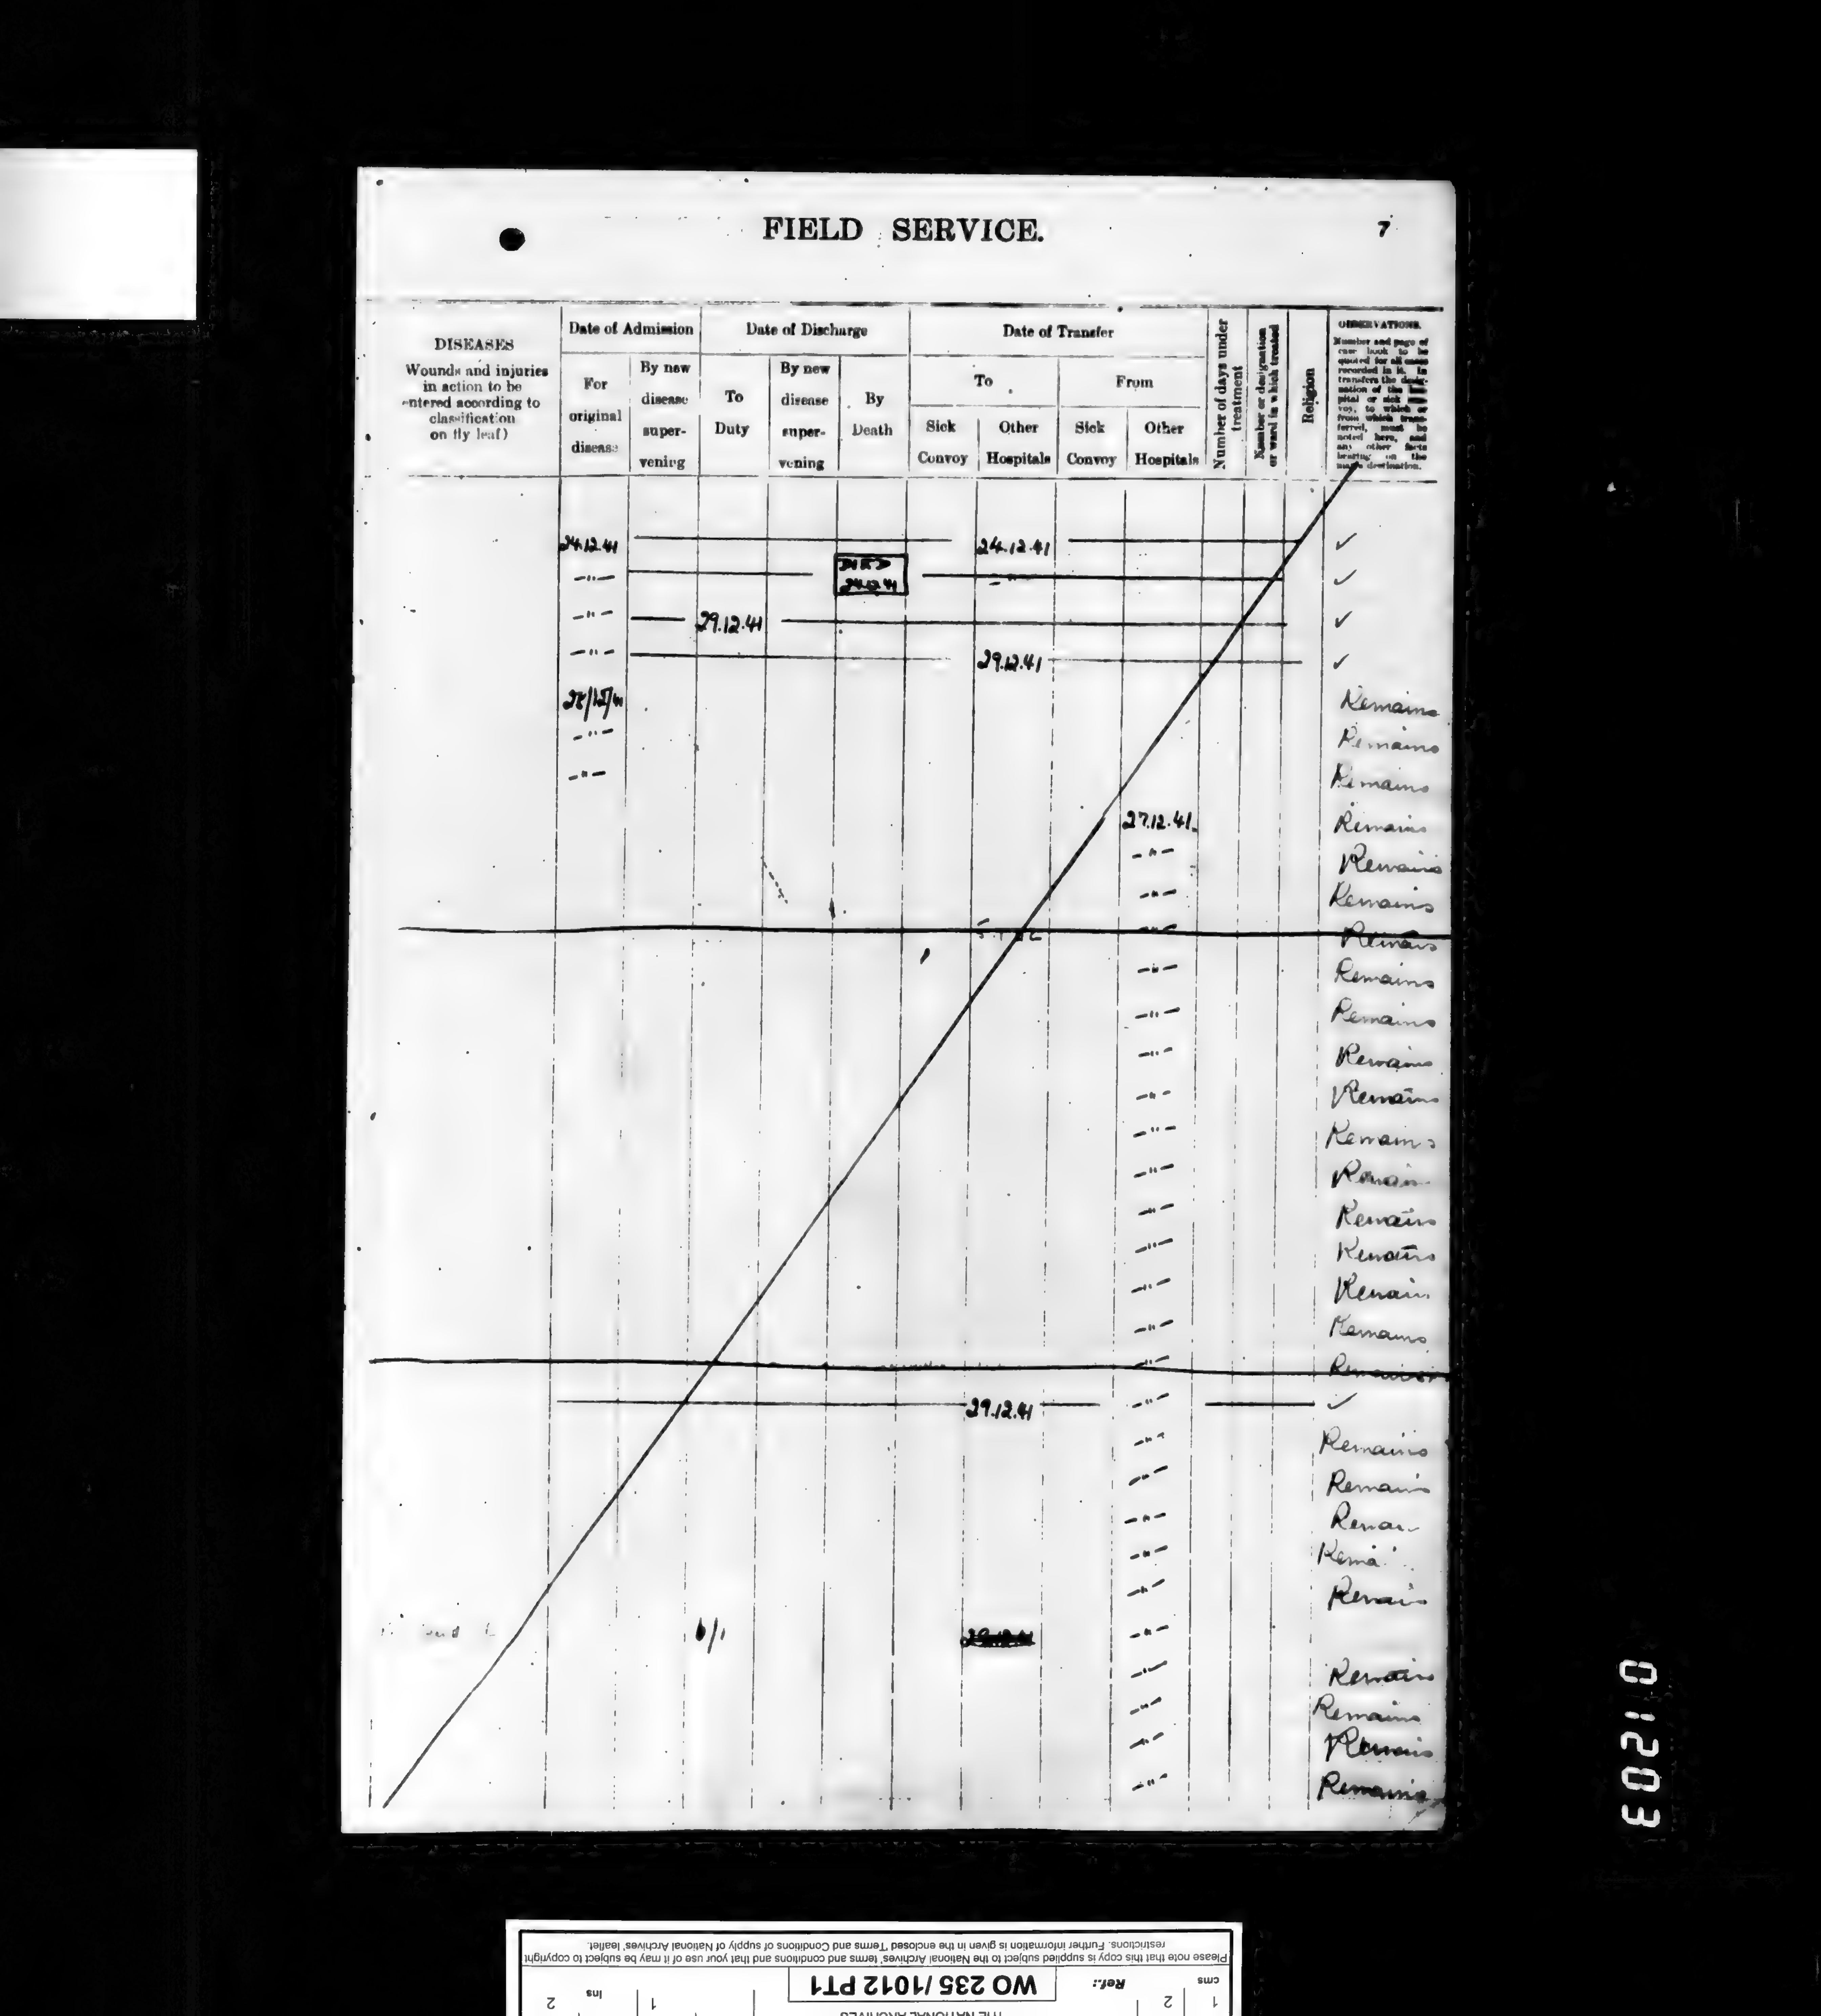 FIELD SERVICE.
7
DISEASES
Wounds and injuries
in action to be
entered according to
classification
on fly leaf)
Date of Admission
For
original
disease
By new
disease
super-
vening
Date of Discharge
To
Duty
By new
disease
super-
vening
By
Death
Date of Transfer
To
Sick
Convoy
Other
Hospitals
From
Sick
Convoy
Other
Hospitals
Number of days under
treatment
Number or designation
or ward in which treated
Religion
OBSERVATIONS.
Number and page of
case book to be
quoted for all cases
recorded in it. In
transfers the desig-
nation of the
pital or sick
voy, to which or
from which trans-
ferred, must be
noted here, and
any other facts
bearing on the
man's destination.
24.12.41 24.12.41 ✓
-"- DIED -"- ✓
24.12.41
-"- 29.12.41 ✓
-"- 29.12.41 ✓
25/12/41 Remains
-"- Remains
-"- Remains
27.12.41 Remains
-"- Remains
-"- Remains
-"- Remains
-"- Remains
-"- Remains
-"- Remains
-"- Remains
-"- Remains
-"- Remain
-"- Remains
-"- Remains
-"- Remain
-"- Remains
-"- Remains
29.12.41 -"- ✓
-"- Remains
-"- Remains
-"-
-"-
-"- Remains
6/1 29.12.41 -"-
-"- Remains
-"- Remains
-"- Remains
-"- Remains
01203
Please note that this copy is supplied subject to the National Archives' terms and conditions and that your use of it may be subject to copyright
restrictions. Further information is given in the enclosed 'Terms and Conditions of supply of National Archives' leaflet.
cms 1 2
Ref.: WO 235/1012 PT1
Ins 1 2
THE NATIONAL ARCHIVES